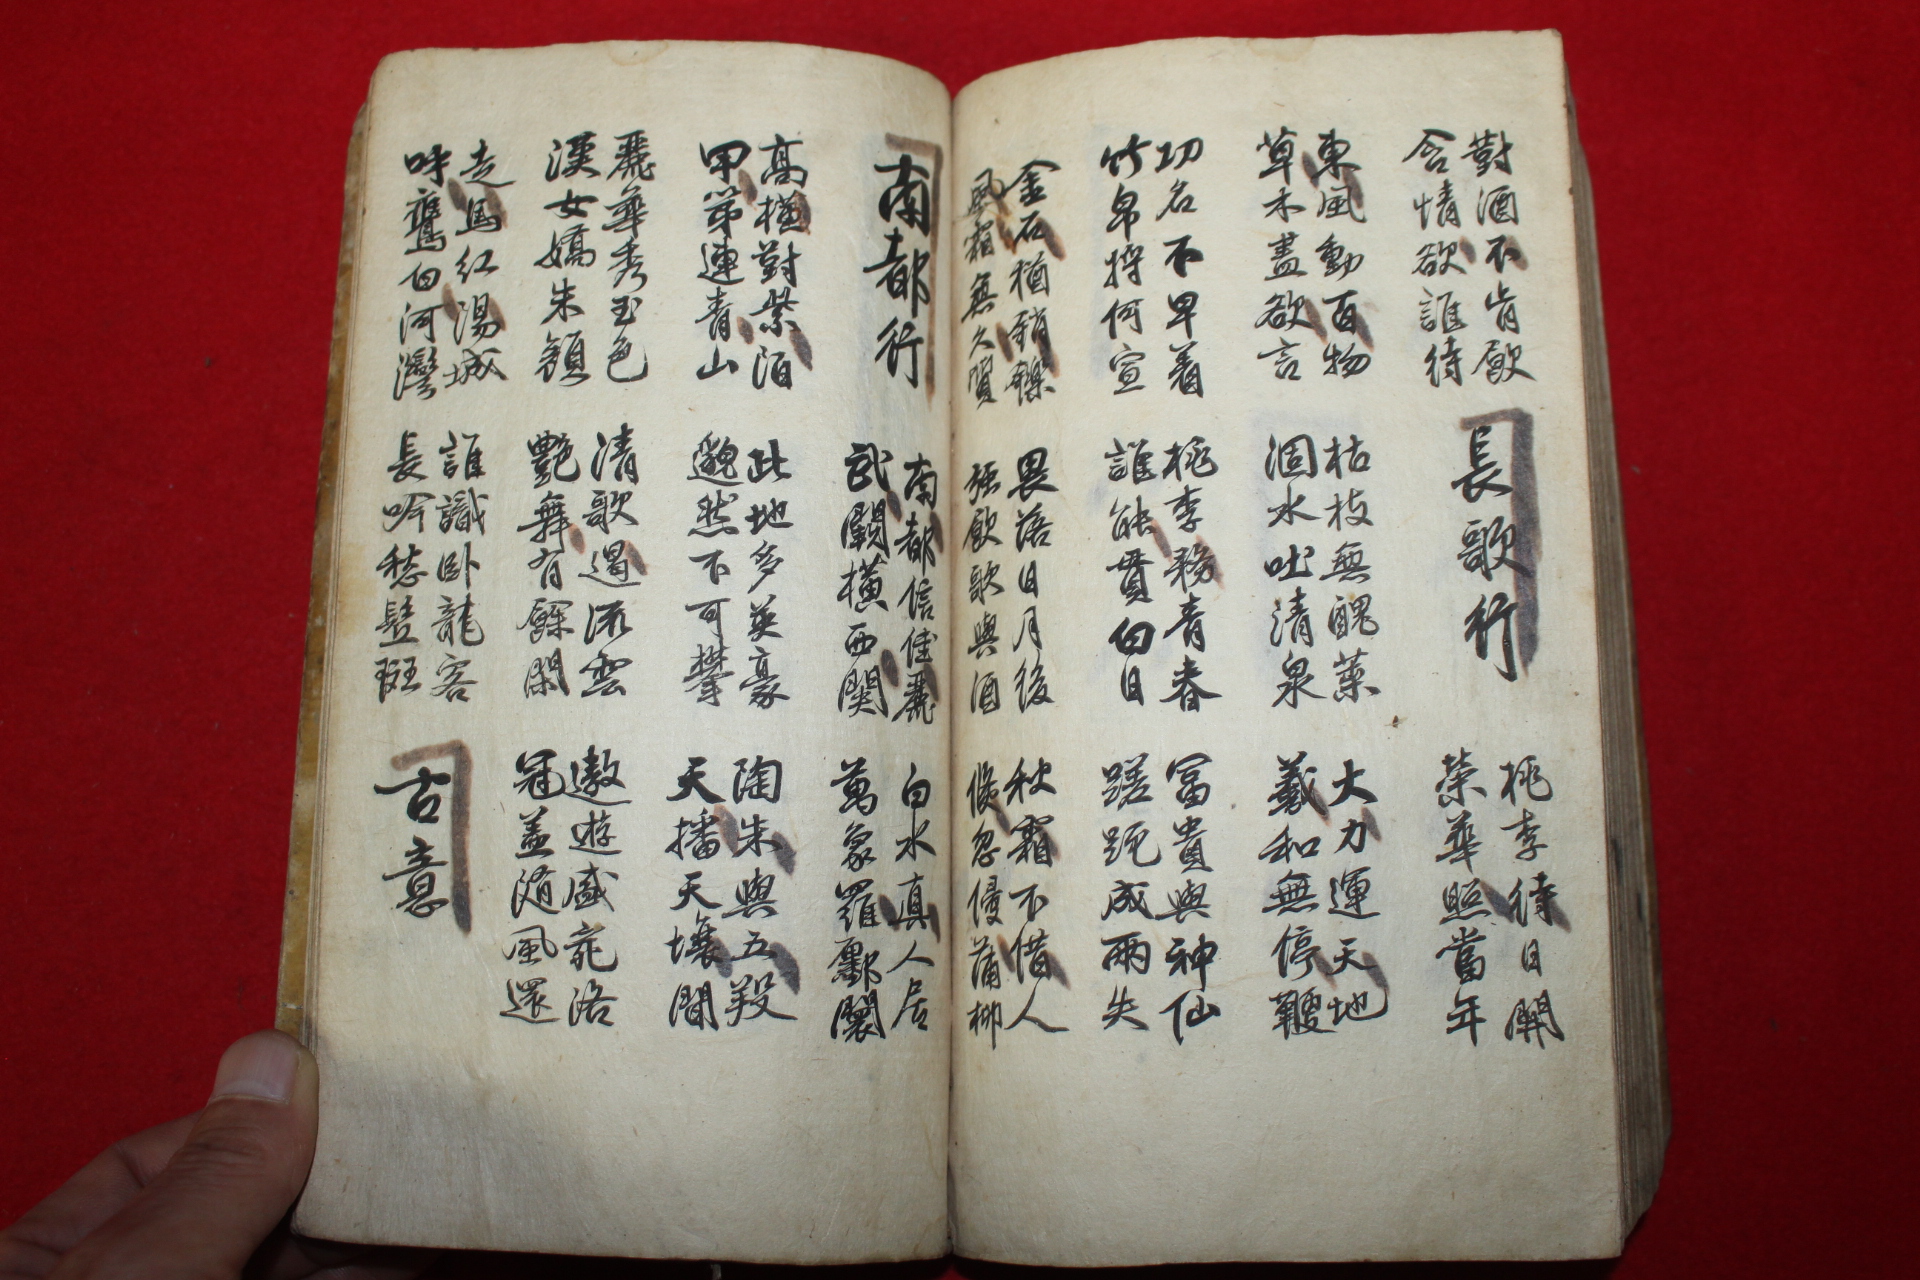 對酒不肯飲
含情欲誰待
長歌行
桃李待日開
榮華照當年
東風動百物
草木盡欲言
枯枝無醜葉
涸水吐清泉
大力運天地
羲和無停鞭
功名不早着
竹帛將何宣
桃李務青春
誰能貫白日
富貴與神仙
蹉跎成兩失
金石猶銷鑠
風霜無久質
畏落日月後
強飲歌與酒
秋霜不惜人
倐忽侵蒲柳
南都行
南都信佳麗
武闕橫西関
白水真人居
萬象羅鄽闤
高樓對紫陌
甲第連青山
此地多英豪
邈然不可攀
陶朱與五羖
天播天壤間
麗華秀玉色
漢女嬌朱顔
清歌遏流雲
艷舞有餘閑
遨遊盛宛洛
冠盖随風還
走馬紅湯城
呼鷹白河灣
誰識卧龍客
長吟愁鬢斑
古意